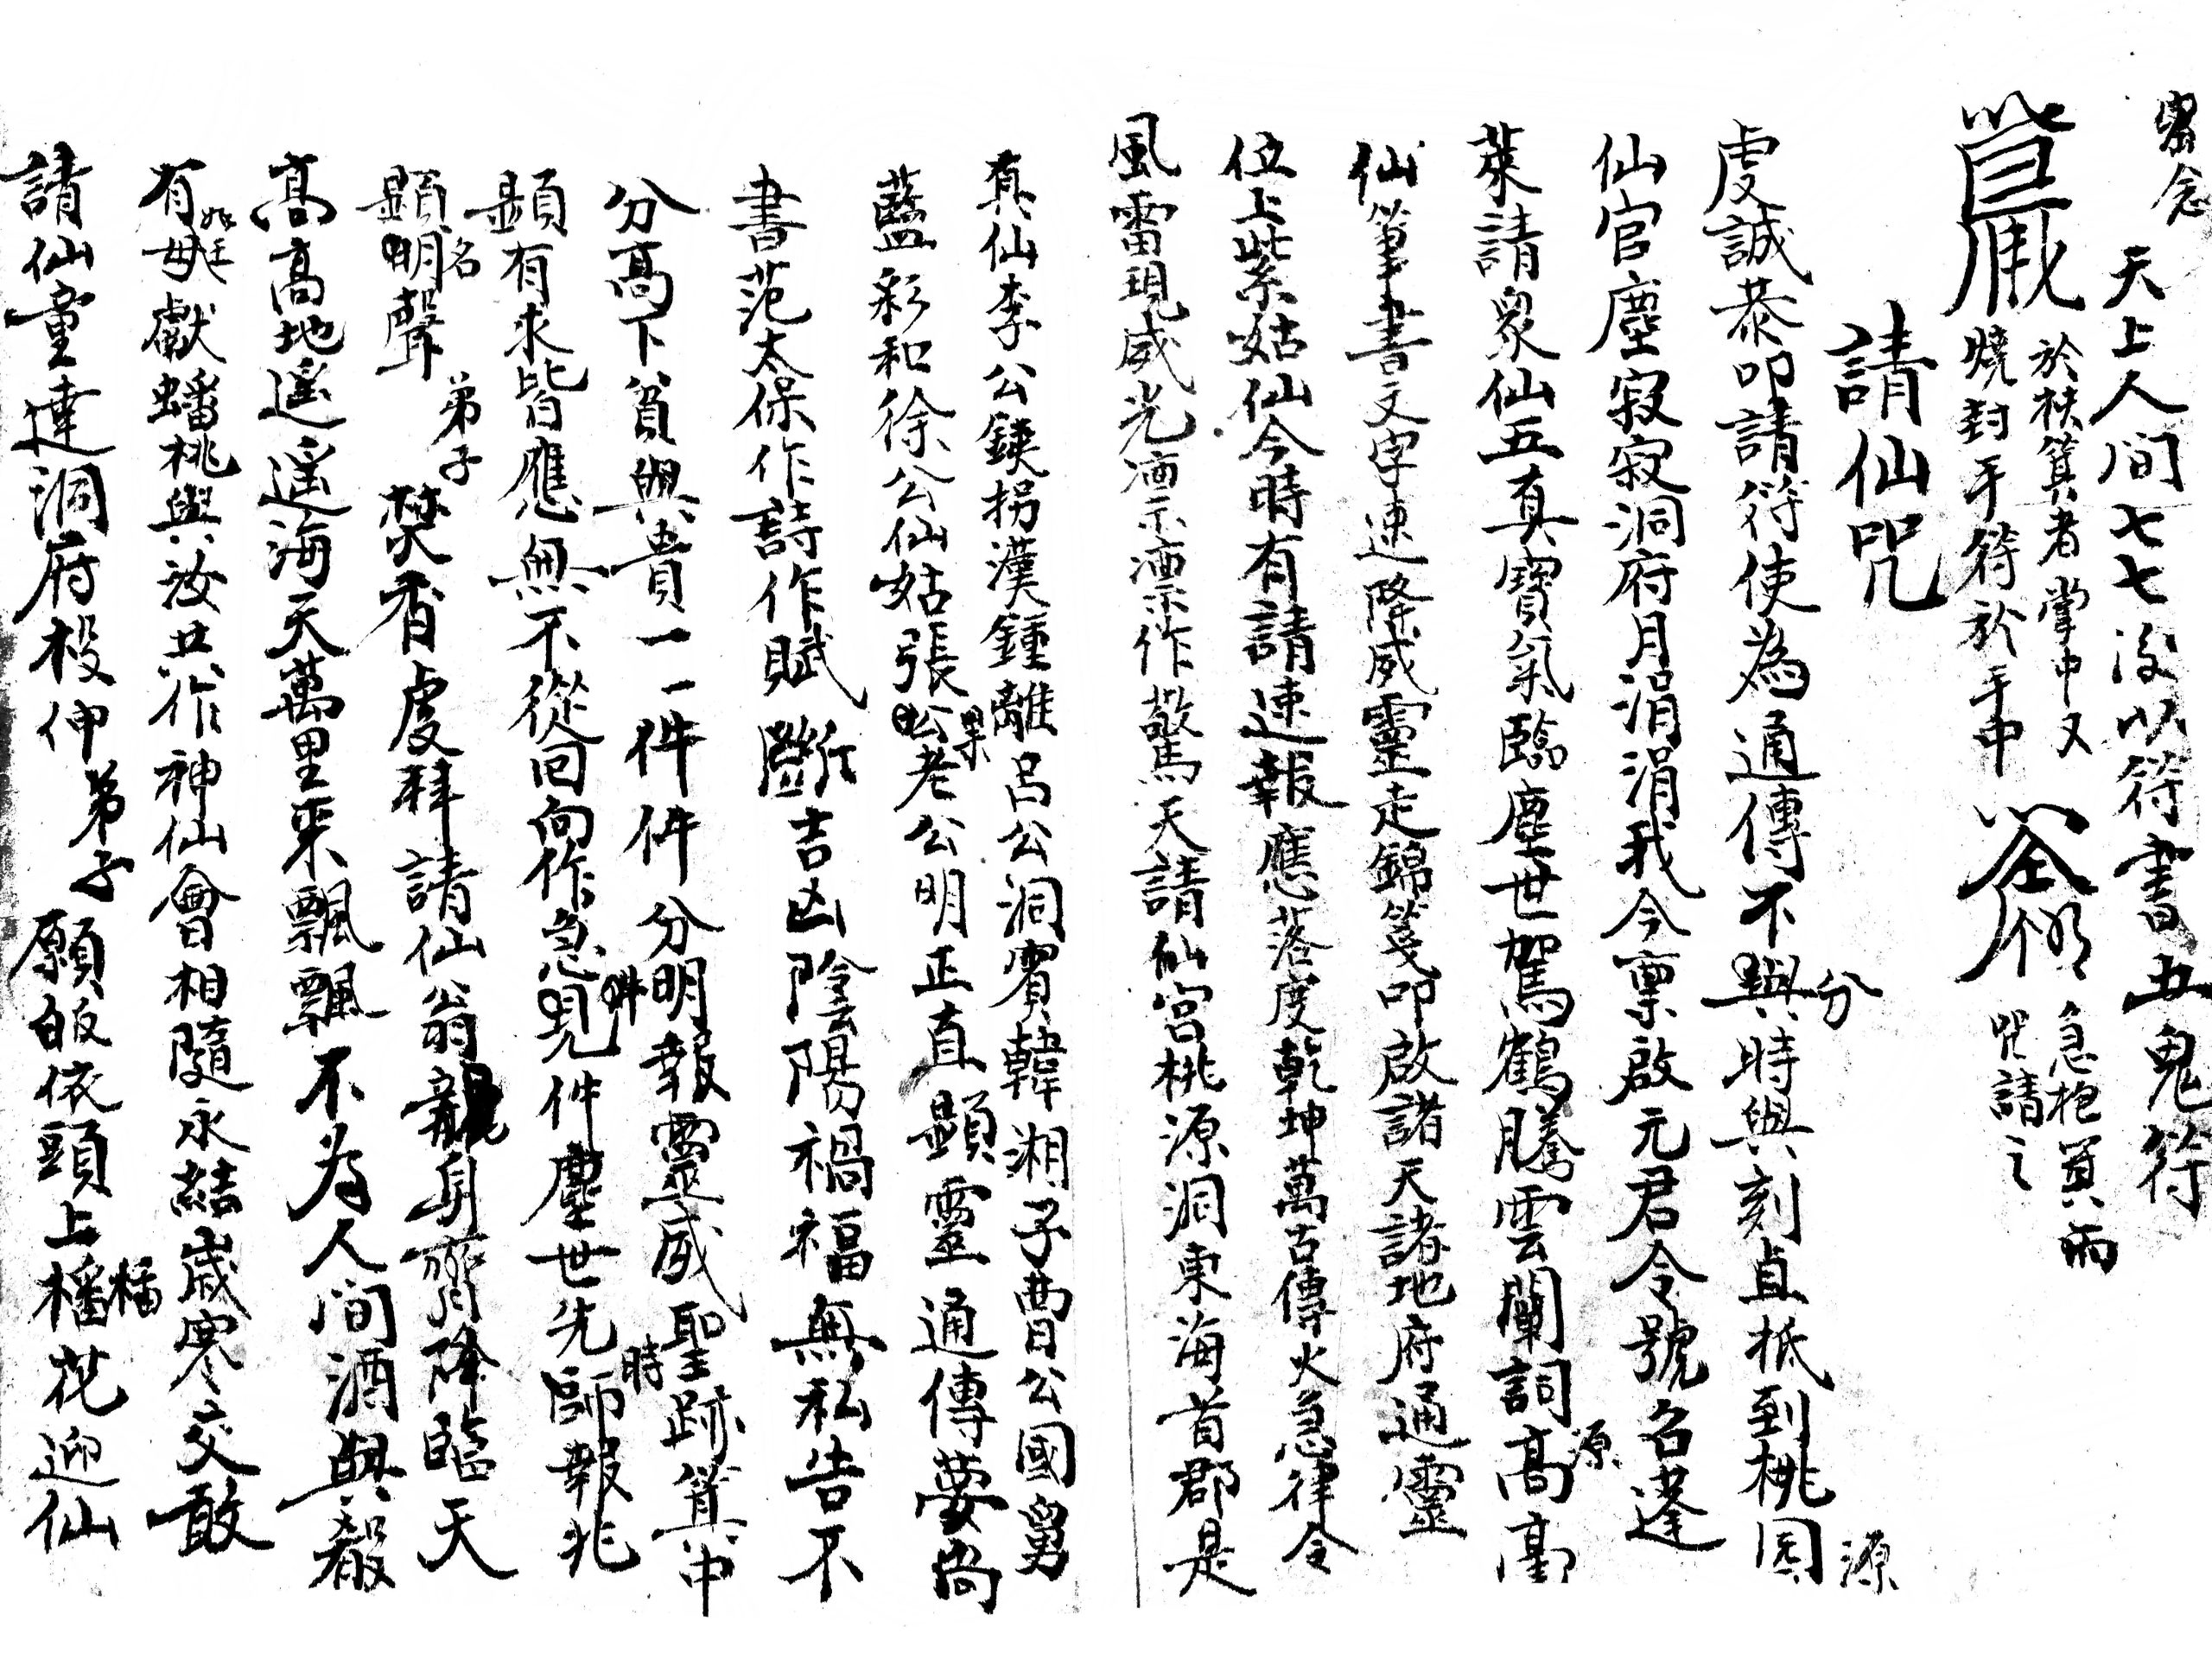 密念
天上人間七七後以符書五鬼符
於扶箕者掌中又
燒封手符於手中
急抱箕而
咒請之
請仙咒
虔誠恭叩請符使為通傳不與分時與刻直抵到桃园源
仙官塵寂寂洞府月涓涓我今稟啟元君令號名蓬
萊請眾仙五真寶氣臨塵世駕鶴騰雲闌詞源高臺
仙筆書文字速降威靈走錦箋叩啟諸天諸地府通靈
位上紫姑仙今時有請速報應落度乾坤萬古傳火急律令
風雷現威光凛凛作驚天請仙宮桃源洞東海首郡是
真仙李公鉄拐漢鍾離呂公洞賓韓湘子曹公國舅
藍彩和徐公仙姑張公果老公明正直顕靈通傳夢尚
書范太保作詩作賦斷吉凶陰陽禍福無私告不
分高下貧與貴一一件件分明報靈威聖跡箕中
顕有求皆應無不從回向作急見件塵世先師時報兆
顕明名聲弟子焚香虔拜請仙翁龍身齊降臨天
高高地遥遥海天萬里來飄飄不為人間酒與殽
有毋獻蟠桃與汝共作神仙會相隨永結歲寒交敢
請仙童達洞府投伸弟子願皈依頭上旛花迎仙